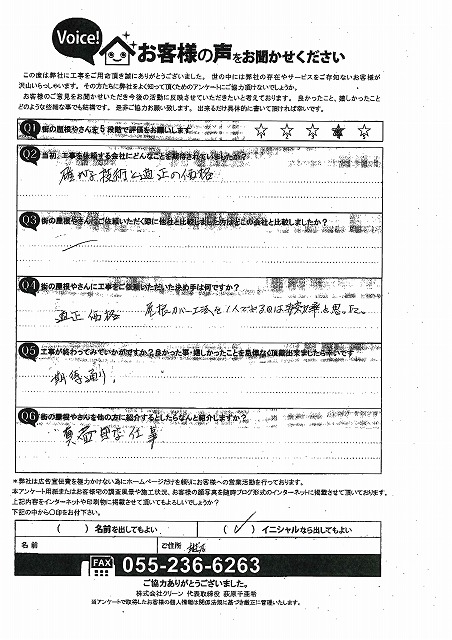 Voice!
お客様の声をお聞かせください
この度は弊社に工事をご用命頂き誠にありがとうございました。世の中には弊社の存在やサービスをご存知ないお客様が
沢山いらっしゃいます。その方たちに弊社をよく知って頂くためのアンケートにご協力頂けないでしょうか。
お客様のご意見をお聞かせいただき今後の活動に反映させていただきたいと考えております。良かったこと、嬉しかったこと
どのような些細な事でも結構です。是非ご協力お願い致します。出来るだけ具体的に書いて頂ければ幸いです。
Q1 街の屋根やさんを5段階で評価をお願いします ☆ ☆ ☆ ★ ☆
Q2 当初、工事を依頼する会社にどんなことを期待されていましたか?
確かな技術と適正の価格
Q3 街の屋根やさんにご依頼いただく際に他社と比較しました方はどこの会社と比較しましたか?
Q4 街の屋根やさんに工事をご依頼いただいた決め手は何ですか?
適正価格 屋根カバー工法を1人でやるのは と思った。
Q5 工事が終わってみていかがですか?良かった事・嬉しかったことを忌憚なく頂戴出来ましたら幸いです
期待通り。
Q6 街の屋根やさんを他の方に紹介するとしたらなんと紹介しますか?
真面目な仕事
*弊社は広告宣伝費を極力かけない為にホームページだけを頼りにお客様への営業活動を行っております。
本アンケート用紙またはお客様宅の調査風景や施工状況、お客様の顔写真を随時ブログ形式のインターネットに掲載させて頂いております。
上記内容をインターネットや印刷物に掲載させて頂いてもよろしいでしょうか?
下記の中から〇印をお付下さい。
( ) 名前を出してもよい (✓) イニシャルなら出してもよい
名前 ご住所
FAX 055-236-6263
ご協力ありがとうございました。
株式会社クリーン 代表取締役 萩原子亜希
当アンケートで取得したお客様の個人情報は関係法規に基づき厳正に管理いたします。